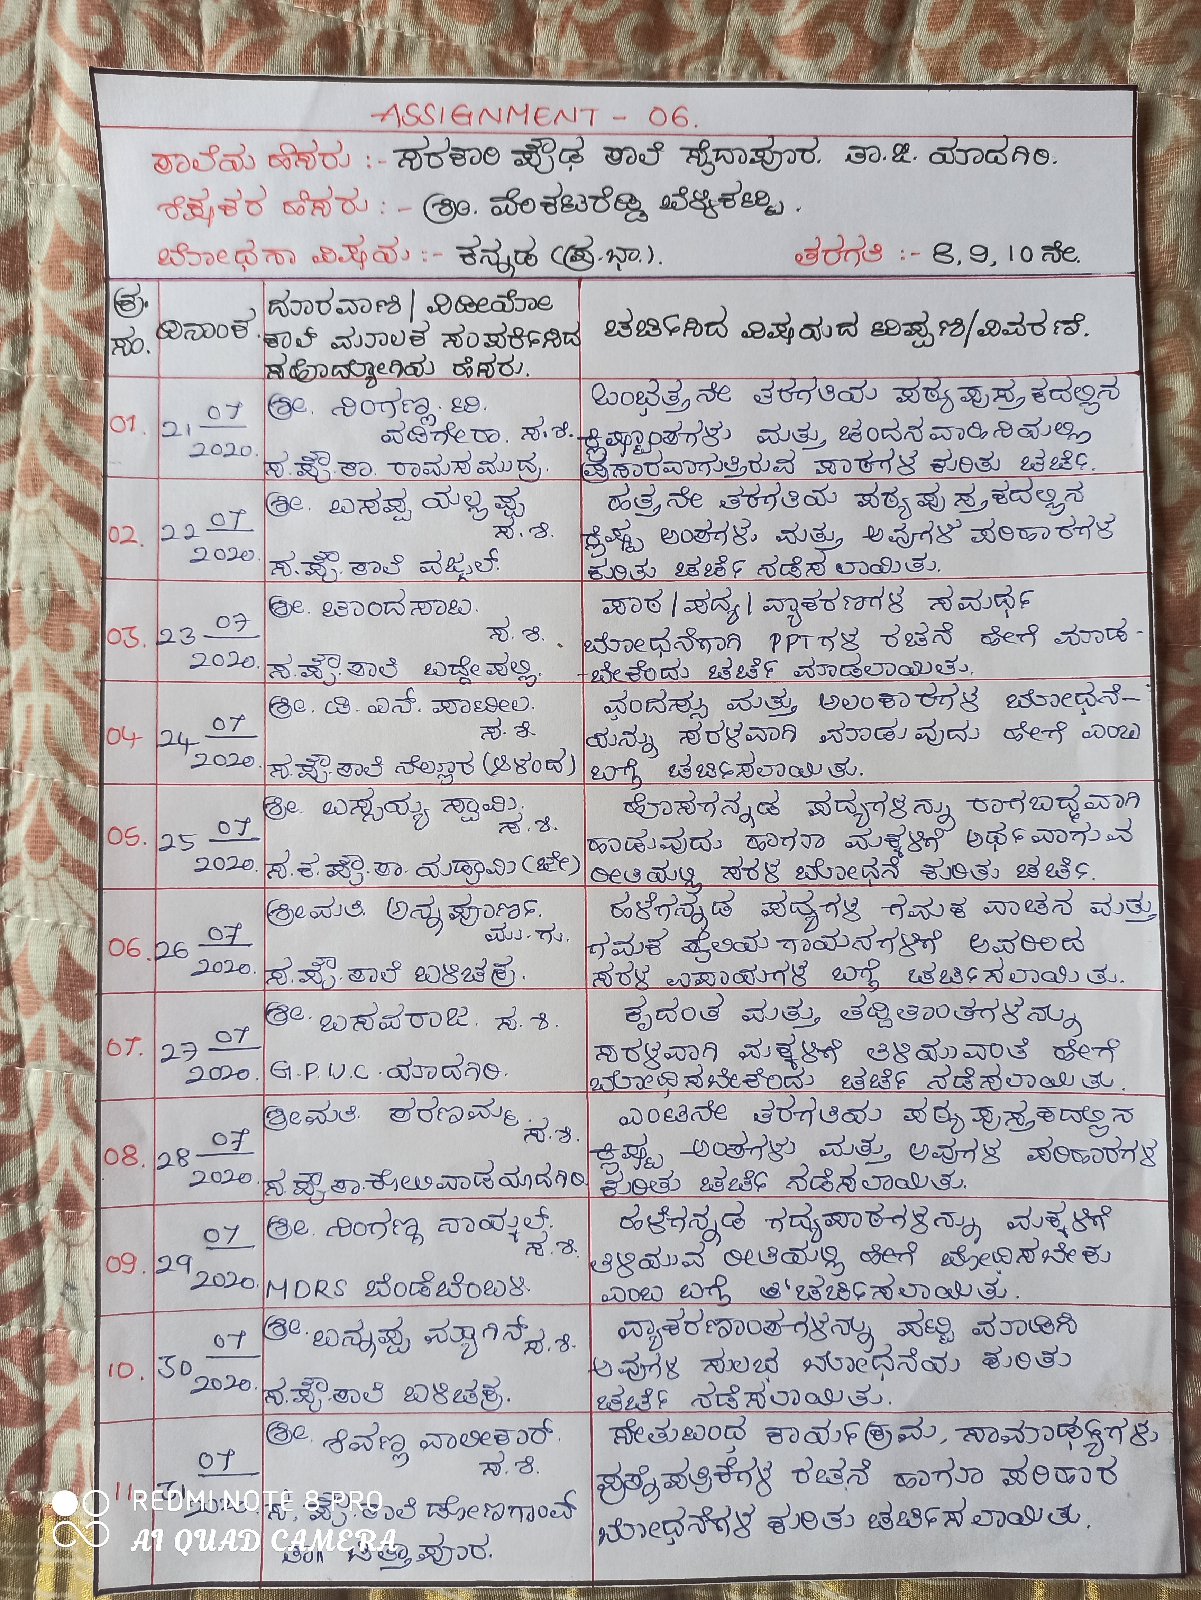 ASSIGNMENT - 06.
ಶಾಲೆಯ ಹೆಸರು :- ಸರಕಾರಿ ಪ್ರೌಢ ಶಾಲೆ ಸೈದಾಪೂರ. ತಾ.ಜಿ. ಯಾದಗಿರಿ.
ಶಿಕ್ಷಕರ ಹೆಸರು :- ಶ್ರೀ. ವೆಂಕಟರೆಡ್ಡಿ
ಬೋಧನಾ ವಿಷಯ :- ಕನ್ನಡ (ಪ್ರ.ಭಾ.). ತರಗತಿ :- 8, 9, 10 ನೇ.
ಕ್ರ. ಸಂ. ದಿನಾಂಕ. ದೂರವಾಣಿ / ವಿಡಿಯೋ
ಕಾಲ್ ಮೂಲಕ ಸಂಪರ್ಕಿಸಿದ
ಸಹೋದ್ಯೋಗಿಯ ಹೆಸರು.
ಚರ್ಚಿಸಿದ ವಿಷಯದ ಟಿಪ್ಪಣಿ/ವಿವರಣೆ.
01. 21 07 2020. ಶ್ರೀ. ನಿಂಗಣ್ಣ. ಟಿ.
ವಡಿಗೇರಾ. ಸ.ಶಿ.
ಸ.ಪ್ರೌ.ಶಾ. ರಾಮಸಮುದ್ರ.
ಒಂಭತ್ತನೇ ತರಗತಿಯ ಪಠ್ಯಪುಸ್ತಕದಲ್ಲಿನ
ಕ್ಲಿಷ್ಟಾಂಶಗಳು ಮತ್ತು ಚಂದನವಾಹಿನಿಯಲ್ಲಿ
ಪ್ರಸಾರವಾಗುತ್ತಿರುವ ಪಾಠಗಳ ಕುರಿತು ಚರ್ಚೆ.
02. 22 07 2020. ಶ್ರೀ. ಬಸಪ್ಪ ಯಲ್ಲಪ್ಪ
ಸ.ಶಿ.
ಸ.ಪ್ರೌ.ಶಾಲೆ ವಜ್ಜಲ್.
ಹತ್ತನೇ ತರಗತಿಯ ಪಠ್ಯಪುಸ್ತಕದಲ್ಲಿನ
ಕ್ಲಿಷ್ಟ ಅಂಶಗಳು ಮತ್ತು ಅವುಗಳ ಪರಿಹಾರಗಳ
ಕುರಿತು ಚರ್ಚೆ ನಡೆಸಲಾಯಿತು.
03. 23 07 2020. ಶ್ರೀ. ಚಾಂದಸಾಬ.
ಸ.ಶಿ.
ಸ.ಪ್ರೌ.ಶಾಲೆ ಬದ್ದೇಪಲ್ಲಿ.
ಪಾಠ / ಪದ್ಯ / ವ್ಯಾಕರಣಗಳ ಸಮರ್ಥ
ಬೋಧನೆಗಾಗಿ PPTಗಳ ರಚನೆ ಹೇಗೆ ಮಾಡ-
ಬೇಕೆಂದು ಚರ್ಚೆ ಮಾಡಲಾಯಿತು.
04 24 07 2020. ಶ್ರೀ. ಡಿ. ಎನ್. ಪಾಟೀಲ.
ಸ.ಶಿ.
ಸ.ಪ್ರೌ.ಶಾಲೆ (ಆಳಂದ)
ಛಂದಸ್ಸು ಮತ್ತು ಅಲಂಕಾರಗಳ ಬೋಧನೆ-
ಯನ್ನು ಸರಳವಾಗಿ ಮಾಡುವುದು ಹೇಗೆ ಎಂಬ
ಬಗ್ಗೆ ಚರ್ಚಿಸಲಾಯಿತು.
05. 25 07 2020. ಶ್ರೀ. ಬಸ್ಸಯ್ಯ ಸ್ವಾಮಿ.
ಸ.ಶಿ.
ಸ.ಕ.ಪ್ರೌ.ಶಾ.
ಹೊಸಗನ್ನಡ ಪದ್ಯಗಳನ್ನು ರಾಗಬದ್ಧವಾಗಿ
ಹಾಡುವುದು ಹಾಗೂ ಮಕ್ಕಳಿಗೆ ಅರ್ಥವಾಗುವ
ರೀತಿಯಲ್ಲಿ ಸರಳ ಬೋಧನೆ ಕುರಿತು ಚರ್ಚೆ.
06. 26 07 2020. ಶ್ರೀಮತಿ. ಅನ್ನಪೂರ್ಣ.
ಮು.ಗು.
ಸ.ಪ್ರೌ.ಶಾಲೆ ಬಳಿಚಕ್ರ.
ಹಳೆಗನ್ನಡ ಪದ್ಯಗಳ ಗಮಕ ವಾಚನ ಮತ್ತು
ಗಮಕ ಶೈಲಿಯ ಗಾಯನಗಳಿಗೆ ಅವರಿಂದ
ಸರಳ ಉಪಾಯಗಳ ಬಗ್ಗೆ ಚರ್ಚಿಸಲಾಯಿತು.
07. 27 07 2020. ಶ್ರೀ. ಬಸವರಾಜ. ಸ.ಶಿ.
G.P.U.C. ಯಾದಗಿರಿ.
ಕೃದಂತ ಮತ್ತು ತದ್ಧಿತಾಂತಗಳನ್ನು
ಸರಳವಾಗಿ ಮಕ್ಕಳಿಗೆ ತಿಳಿಯುವಂತೆ ಹೇಗೆ
ಬೋಧಿಸಬೇಕೆಂದು ಚರ್ಚೆ ನಡೆಸಲಾಯಿತು.
08. 28 07 2020. ಶ್ರೀಮತಿ. ಶರಣಮ್ಮ.
ಸ.ಶಿ.
ಸ.ಪ್ರೌ.ಶಾ.ಕೋಲಿವಾಡಯಾದಗಿರಿ
ಎಂಟನೇ ತರಗತಿಯ ಪಠ್ಯಪುಸ್ತಕದಲ್ಲಿನ
ಕ್ಲಿಷ್ಟ ಅಂಶಗಳು ಮತ್ತು ಅವುಗಳ ಪರಿಹಾರಗಳ
ಕುರಿತು ಚರ್ಚೆ ನಡೆಸಲಾಯಿತು.
09. 29 07 2020. ಶ್ರೀ. ನಿಂಗಣ್ಣ ನಾಯ್ಕಲ್.
ಸ.ಶಿ.
MDRS ಬೆಂಡೆಬೆಂಬಳಿ.
ಹಳೆಗನ್ನಡ ಗದ್ಯಪಾಠಗಳನ್ನು ಮಕ್ಕಳಿಗೆ
ತಿಳಿಯುವ ರೀತಿಯಲ್ಲಿ ಹೇಗೆ ಬೋಧಿಸಬೇಕು
ಎಂಬ ಬಗ್ಗೆ ಚರ್ಚಿಸಲಾಯಿತು.
10. 30 07 2020. ಶ್ರೀ. ಬನ್ನಪ್ಪ ಸ.ಶಿ.
ಸ.ಪ್ರೌ.ಶಾಲೆ ಬಳಿಚಕ್ರ.
ವ್ಯಾಕರಣಾಂಶಗಳನ್ನು ಪಟ್ಟಿ ಮಾಡಿ
ಅವುಗಳ ಸುಲಭ ಬೋಧನೆಯ ಕುರಿತು
ಚರ್ಚೆ ನಡೆಸಲಾಯಿತು.
11. 31 07 ಶ್ರೀ. ಶಿವಣ್ಣ ವಾಲೀಕಾರ್.
ಸ.ಶಿ.
ಸ.ಪ್ರೌ.ಶಾಲೆ ಡೋಣಗಾಂವ್
ಚಿತ್ತಾಪೂರ.
ಸೇತುಬಂಧ ಕಾರ್ಯಕ್ರಮ, ಸಾಮರ್ಥ್ಯಗಳು
ಪ್ರಶ್ನೆಪತ್ರಿಕೆಗಳ ರಚನೆ ಹಾಗೂ ಪರಿಹಾರ
ಬೋಧನೆಗಳ ಕುರಿತು ಚರ್ಚಿಸಲಾಯಿತು.
REDMI NOTE 8 PRO
AI QUAD CAMERA